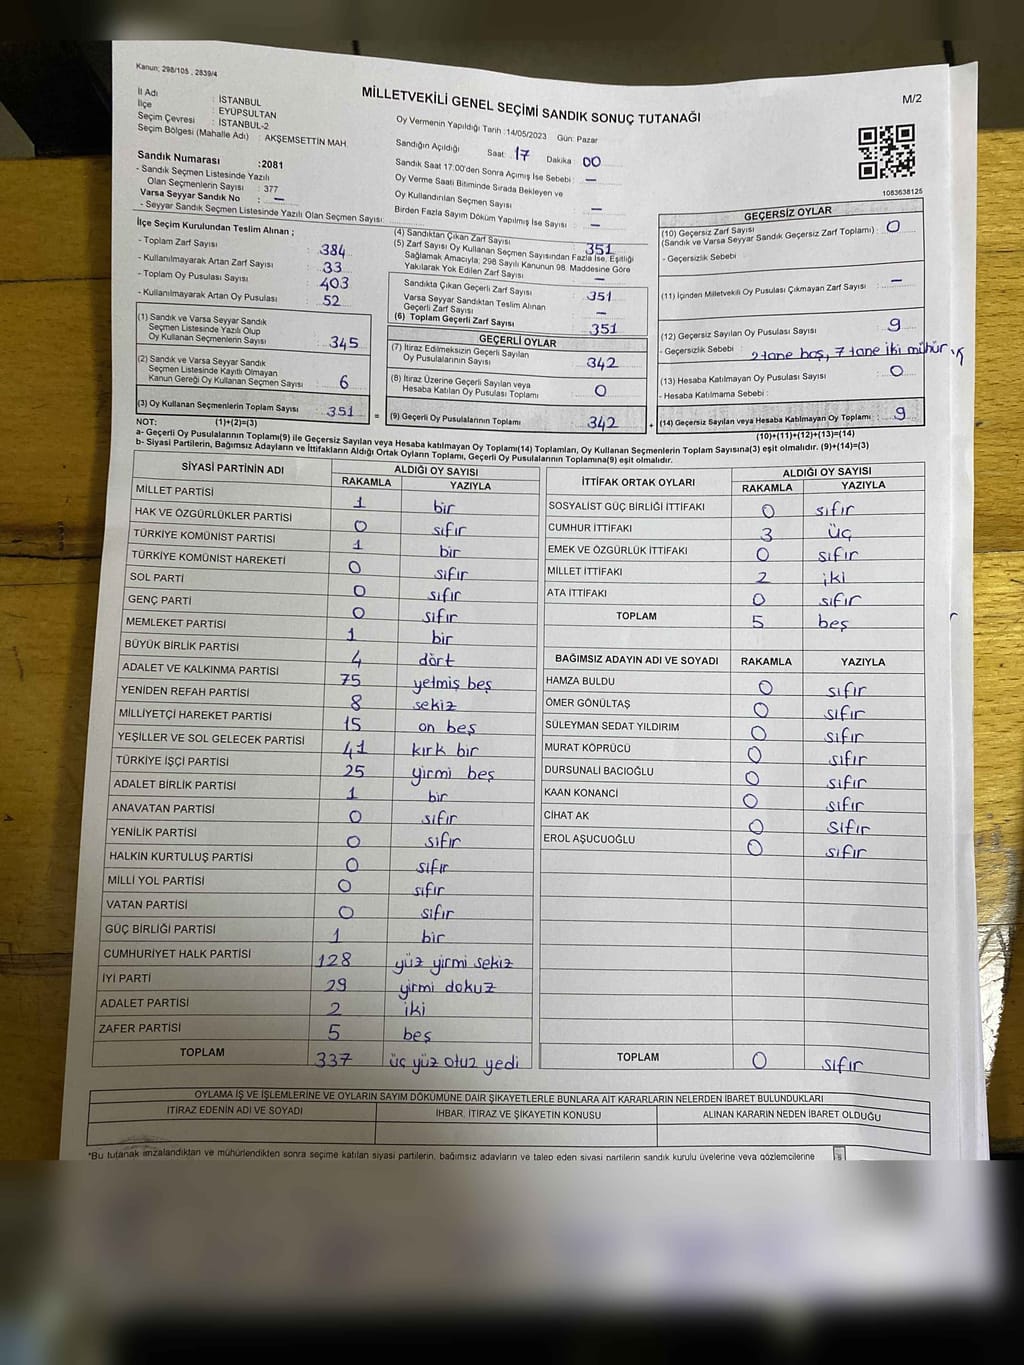 Kanun; 298/105 , 2839/4
MİLLETVEKİLİ GENEL SEÇİMİ SANDIK SONUÇ TUTANAĞI
M/2
İl Adı : İSTANBUL
İlçe : EYÜPSULTAN
Seçim Çevresi : İSTANBUL-2
Seçim Bölgesi (Mahalle Adı) : AKŞEMSETTİN MAH.
Sandık Numarası :2081
- Sandık Seçmen Listesinde Yazılı
Olan Seçmenlerin Sayısı : 377
Varsa Seyyar Sandık No : —
- Seyyar Sandık Seçmen Listesinde Yazılı Olan Seçmen Sayısı:
Oy Vermenin Yapıldığı Tarih :14/05/2023 Gün: Pazar
Sandığın Açıldığı Saat: 17 Dakika 00
Sandık Saat 17:00'den Sonra Açımış İse Sebebi : —
Oy Verme Saati Bitiminde Sırada Bekleyen ve
Oy Kullandırılan Seçmen Sayısı —
Birden Fazla Sayım Döküm Yapılmış İse Sayısı : —
1083638125
İlçe Seçim Kurulundan Teslim Alınan ;
- Toplam Zarf Sayısı : 384
- Kullanılmayarak Artan Zarf Sayısı : 33
- Toplam Oy Pusulası Sayısı : 403
- Kullanılmayarak Artan Oy Pusulası : 52
(1) Sandık ve Varsa Seyyar Sandık
Seçmen Listesinde Yazılı Olup
Oy Kullanan Seçmenlerin Sayısı : 345
(2) Sandık ve Varsa Seyyar Sandık
Seçmen Listesinde Kayıtlı Olmayan
Kanun Gereği Oy Kullanan Seçmen Sayısı : 6
(3) Oy Kullanan Seçmenlerin Toplam Sayısı : 351 =
(4) Sandıktan Çıkan Zarf Sayısı : 351
(5) Zarf Sayısı Oy Kullanan Seçmen Sayısından Fazla İse, Eşitliği
Sağlamak Amacıyla; 298 Sayılı Kanunun 98. Maddesine Göre
Yakılarak Yok Edilen Zarf Sayısı : —
Sandıkta Çıkan Geçerli Zarf Sayısı : 351
Varsa Seyyar Sandıktan Teslim Alınan
Geçerli Zarf Sayısı : —
(6) Toplam Geçerli Zarf Sayısı : 351
GEÇERLİ OYLAR
(7) İtiraz Edilmeksizin Geçerli Sayılan
Oy Pusulalarının Sayısı : 342
(8) İtiraz Üzerine Geçerli Sayılan veya
Hesaba Katılan Oy Pusulası Toplamı : 0
(9) Geçerli Oy Pusulalarının Toplamı : 342 +
GEÇERSİZ OYLAR
(10) Geçersiz Zarf Sayısı
(Sandık ve Varsa Seyyar Sandık Geçersiz Zarf Toplamı) : 0
- Geçersizlik Sebebi
(11) İçinden Milletvekili Oy Pusulası Çıkmayan Zarf Sayısı : —
(12) Geçersiz Sayılan Oy Pusulası Sayısı : 9
- Geçersizlik Sebebi : 2 tane boş, 7 tane iki mühür
(13) Hesaba Katılmayan Oy Pusulası Sayısı : 0
- Hesaba Katılmama Sebebi :
(14) Geçersiz Sayılan veya Hesaba Katılmayan Oy Toplamı : 9
NOT: (1)+(2)=(3)
(10)+(11)+(12)+(13)=(14)
a- Geçerli Oy Pusulalarının Toplamı(9) ile Geçersiz Sayılan veya Hesaba katılmayan Oy Toplamı(14) Toplamları, Oy Kullanan Seçmenlerin Toplam Sayısına(3) eşit olmalıdır. (9)+(14)=(3)
b- Siyasi Partilerin, Bağımsız Adayların ve İttifakların Aldığı Ortak Oyların Toplamı, Geçerli Oy Pusulalarının Toplamına(9) eşit olmalıdır.
SİYASİ PARTİNİN ADI ALDIĞI OY SAYISI
RAKAMLA YAZIYLA
MİLLET PARTİSİ 1 bir
HAK VE ÖZGÜRLÜKLER PARTİSİ 0 sıfır
TÜRKİYE KOMÜNİST PARTİSİ 1 bir
TÜRKİYE KOMÜNİST HAREKETİ 0 sıfır
SOL PARTİ 0 sıfır
GENÇ PARTİ 0 sıfır
MEMLEKET PARTİSİ 1 bir
BÜYÜK BİRLİK PARTİSİ 4 dört
ADALET VE KALKINMA PARTİSİ 75 yetmiş beş
YENİDEN REFAH PARTİSİ 8 sekiz
MİLLİYETÇİ HAREKET PARTİSİ 15 on beş
YEŞİLLER VE SOL GELECEK PARTİSİ 41 kırk bir
TÜRKİYE İŞÇİ PARTİSİ 25 yirmi beş
ADALET BİRLİK PARTİSİ 1 bir
ANAVATAN PARTİSİ 0 sıfır
YENİLİK PARTİSİ 0 sıfır
HALKIN KURTULUŞ PARTİSİ 0 sıfır
MİLLİ YOL PARTİSİ 0 sıfır
VATAN PARTİSİ 0 sıfır
GÜÇ BİRLİĞİ PARTİSİ 1 bir
CUMHURİYET HALK PARTİSİ 128 yüz yirmi sekiz
İYİ PARTİ 29 yirmi dokuz
ADALET PARTİSİ 2 iki
ZAFER PARTİSİ 5 beş
TOPLAM 337 üç yüz otuz yedi
İTTİFAK ORTAK OYLARI ALDIĞI OY SAYISI
RAKAMLA YAZIYLA
SOSYALİST GÜÇ BİRLİĞİ İTTİFAKI 0 sıfır
CUMHUR İTTİFAKI 3 üç
EMEK VE ÖZGÜRLÜK İTTİFAKI 0 sıfır
MİLLET İTTİFAKI 2 iki
ATA İTTİFAKI 0 sıfır
TOPLAM 5 beş
BAĞIMSIZ ADAYIN ADI VE SOYADI RAKAMLA YAZIYLA
HAMZA BULDU 0 sıfır
ÖMER GÖNÜLTAŞ 0 sıfır
SÜLEYMAN SEDAT YILDIRIM 0 sıfır
MURAT KÖPRÜCÜ 0 sıfır
DURSUNALİ BACIOĞLU 0 sıfır
KAAN KONANCİ 0 sıfır
CİHAT AK 0 sıfır
EROL AŞUCUOĞLU 0 sıfır
TOPLAM 0 sıfır
OYLAMA İŞ VE İŞLEMLERİNE VE OYLARIN SAYIM DÖKÜMÜNE DAİR ŞİKAYETLERLE BUNLARA AİT KARARLARIN NELERDEN İBARET BULUNDUKLARI
İTİRAZ EDENİN ADI VE SOYADI İHBAR, İTİRAZ VE ŞİKAYETİN KONUSU ALINAN KARARIN NEDEN İBARET OLDUĞU
*Bu tutanak imzalandıktan ve mühürlendikten sonra seçime katılan siyasi partilerin, bağımsız adayların ve talep eden siyasi partilerin sandık kurulu üyelerine veya gözlemcilerine